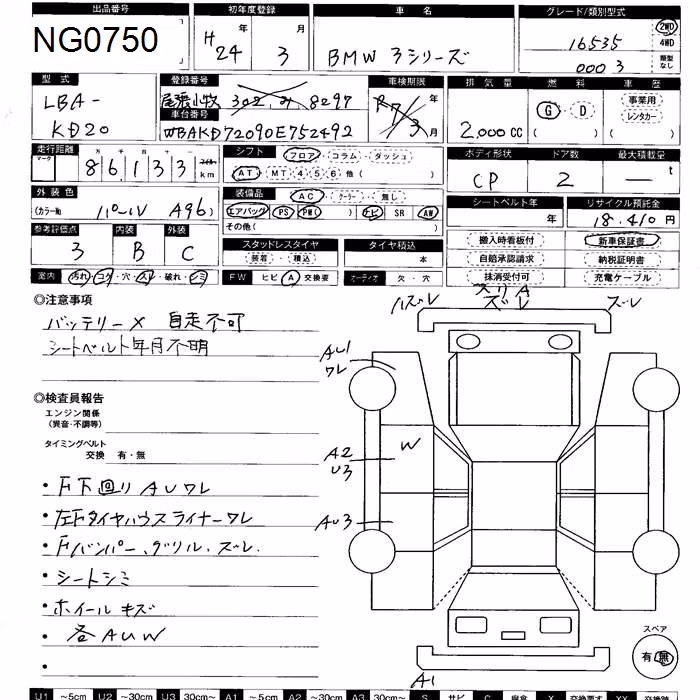 出品番号 初年度登録 車名 グレード/類別型式
NG0750 H 24 年 3 月 BMW 3シリーズ 16535 0003 2WD 4WD 類型なし
型式 登録番号 車検期限 排気量 燃料 車歴
LBA-KD20 尾張小牧 302 み 8297 R7年 3月 2,000cc G・D ( )( ) 事業用 レンタカー ( )
車台番号
WBAKD72090E752492
走行距離 シフト フロア・コラム・ダッシュ ボディ形状 ドア数 最大積載量
マーク 86,133 マイル km AT・MT 4 5 6 他( ) CP 2 — t
外装色 装備品 AC・クーラー・無し シートベルト年 リサイクル預託金
(カラーNo パールV A96) エアバッグ( ) PS PW( ) ナビ SR AW 年 18,410円
その他( )
参考評価点 内装 外装 スタッドレスタイヤ タイヤ積込 搬入時看板付 新車保証書
3 B C 装着・積込 本 自賠承認請求 納税証明書
室内 汚れ・コゲ・穴・スレ・破れ・シミ FW ヒビ A 交換要 オーディオ 欠・穴 抹消受付可 充電ケーブル
◎注意事項
バッテリー× 自走不可
シートベルト年月不明
◎検査員報告
エンジン関係
(異音・不調等)
タイミングベルト
交換 有・無
・下下回りAUワレ
・左Fタイヤハウスライナーワレ
・Fバンパー、グリル、ズレ.
・シートシミ
・ホイールキズ
・各AUW
・
ハズレ スリA ズレ ズレ
AU1
ワレ
A2
U3
W
AU3
A1
スペア
有・無
U1 ~5cm U2 ~30cm U3 30cm~ A1 ~5cm A2 ~30cm A3 30cm~ S サビ C 腐食 X 交換要す XX 交換跡